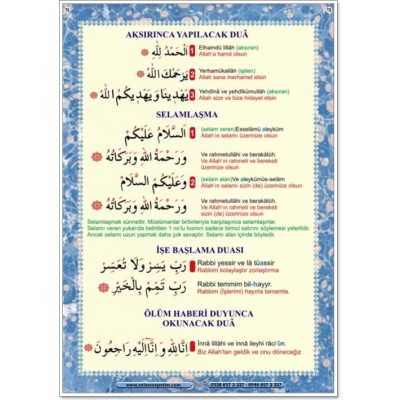 AKSIRINCA YAPILACAK DUÂ
اَلْحَمْدُ لِلّٰهِ 1 Elhamdü lillâh (aksıran)
Allah'a hamd olsun
يَرْحَمُكَ اللّٰهُ 2 Yerhamükallâh (işiten)
Allah sana merhamet etsin
يَهْدِينَا وَيَهْدِيكُمُ اللّٰهُ 3 Yehdînâ ve yehdîkümüllâh (aksıran)
Allah size ve bize hidayet etsin
SELAMLAŞMA
اَلسَّلَامُ عَلَيْكُمْ 1 (selam veren)Esselâmü aleyküm
Allah'ın selamı üzerinize olsun
وَرَحْمَةُ اللّٰهِ وَبَرَكَاتُهُ Ve rahmetullahi ve berakâtüh.
Ve Allah'ın rahmeti ve bereketi
üzerinize olsun
وَعَلَيْكُمُ السَّلَامُ 2 (selam alan)Ve aleykümüs-selâm
Allah'ın selamı sizin (de) üzerinize olsun
وَرَحْمَةُ اللّٰهِ وَبَرَكَاتُهُ Ve rahmetullahi ve berakâtüh.
Ve Allah'ın rahmeti ve bereketi
sizin (de) üzerinize olsun
Selamlaşmak sünnettir. Müslümanlar birbirleriyle karşılaşınca selamlaşırlar.
Selam veren yukarıda belirtilen 1 no'lu kısmın sadece birinci satırını söylemesi yeterlidir.
Ancak selamı uzun yapmak daha çok sevaptır. Selamı alan içinde böyledir.
İŞE BAŞLAMA DUASI
رَبِّ يَسِّرْ وَلَا تُعَسِّرْ Rabbi yessir ve lâ tüassir
Rabbim kolaylaştır zorlaştırma
رَبِّ تَمِّمْ بِالْخَيْرِ Rabbi temmim bil-hayyr.
Rabbim (İşlerimi) hayırla tamamla.
ÖLÜM HABERİ DUYUNCA
OKUNACAK DUÂ
اِنَّا لِلّٰهِ وَاِنَّٓا اِلَيْهِ رَاجِعُونَ İnnâ lillâhi ve innâ ileyhi râci'ûn.
Biz Allah'tan geldik ve onu döneceğiz